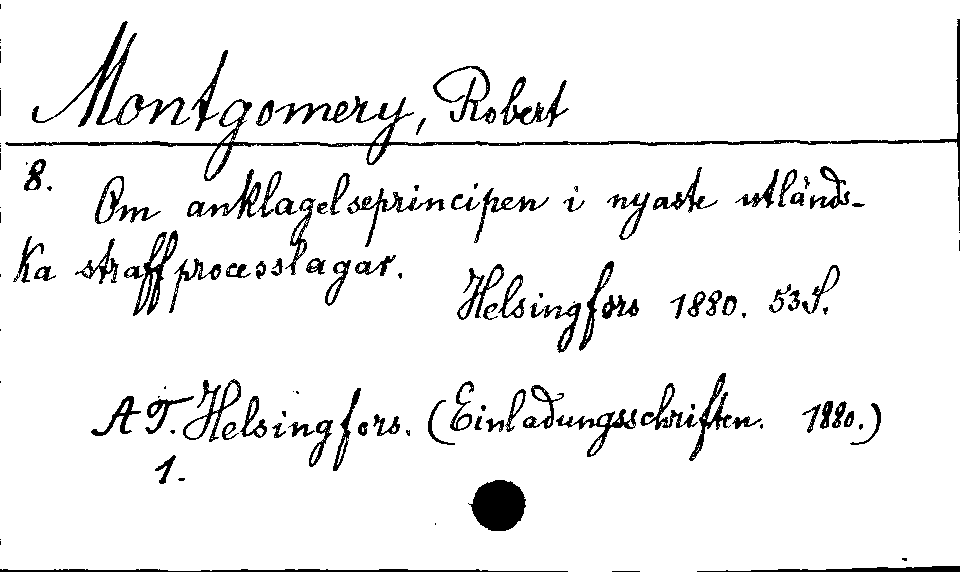 Montgomery, Robert
8.
Om anklagelseprincipen i nyaste utländs-
ka straffprocesslagar.
Helsingfors 1880. 53 S.
A T. Helsingfors. (Einladungsschriften. 1880.)
1.